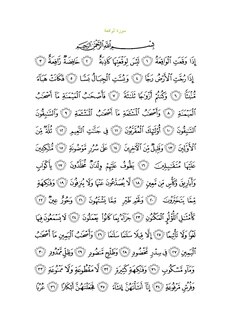 سورة الواقعة
بسم الله الرحمن الرحيم
إِذَا وَقَعَتِ الْوَاقِعَةُ ۝١ لَيْسَ لِوَقْعَتِهَا كَاذِبَةٌ ۝٢ خَافِضَةٌ رَّافِعَةٌ ۝٣
إِذَا رُجَّتِ الْأَرْضُ رَجًّا ۝٤ وَبُسَّتِ الْجِبَالُ بَسًّا ۝٥ فَكَانَتْ هَبَاءً
مُّنبَثًّا ۝٦ وَكُنتُمْ أَزْوَاجًا ثَلَاثَةً ۝٧ فَأَصْحَابُ الْمَيْمَنَةِ مَا أَصْحَابُ
الْمَيْمَنَةِ ۝٨ وَأَصْحَابُ الْمَشْأَمَةِ مَا أَصْحَابُ الْمَشْأَمَةِ ۝٩ وَالسَّابِقُونَ
السَّابِقُونَ ۝١٠ أُولَٰئِكَ الْمُقَرَّبُونَ ۝١١ فِي جَنَّاتِ النَّعِيمِ ۝١٢ ثُلَّةٌ مِّنَ
الْأَوَّلِينَ ۝١٣ وَقَلِيلٌ مِّنَ الْآخِرِينَ ۝١٤ عَلَىٰ سُرُرٍ مَّوْضُونَةٍ ۝١٥ مُّتَّكِئِينَ
عَلَيْهَا مُتَقَابِلِينَ ۝١٦ يَطُوفُ عَلَيْهِمْ وِلْدَانٌ مُّخَلَّدُونَ ۝١٧ بِأَكْوَابٍ
وَأَبَارِيقَ وَكَأْسٍ مِّن مَّعِينٍ ۝١٨ لَّا يُصَدَّعُونَ عَنْهَا وَلَا يُنزِفُونَ ۝١٩ وَفَاكِهَةٍ
مِّمَّا يَتَخَيَّرُونَ ۝٢٠ وَلَحْمِ طَيْرٍ مِّمَّا يَشْتَهُونَ ۝٢١ وَحُورٌ عِينٌ ۝٢٢
كَأَمْثَالِ اللُّؤْلُؤِ الْمَكْنُونِ ۝٢٣ جَزَاءً بِمَا كَانُوا يَعْمَلُونَ ۝٢٤ لَا يَسْمَعُونَ فِيهَا
لَغْوًا وَلَا تَأْثِيمًا ۝٢٥ إِلَّا قِيلًا سَلَامًا سَلَامًا ۝٢٦ وَأَصْحَابُ الْيَمِينِ مَا أَصْحَابُ
الْيَمِينِ ۝٢٧ فِي سِدْرٍ مَّخْضُودٍ ۝٢٨ وَطَلْحٍ مَّنضُودٍ ۝٢٩ وَظِلٍّ مَّمْدُودٍ ۝٣٠
وَمَاءٍ مَّسْكُوبٍ ۝٣١ وَفَاكِهَةٍ كَثِيرَةٍ ۝٣٢ لَّا مَقْطُوعَةٍ وَلَا مَمْنُوعَةٍ ۝٣٣
وَفُرُشٍ مَّرْفُوعَةٍ ۝٣٤ إِنَّا أَنشَأْنَاهُنَّ إِنشَاءً ۝٣٥ فَجَعَلْنَاهُنَّ أَبْكَارًا ۝٣٦ عُرُبًا